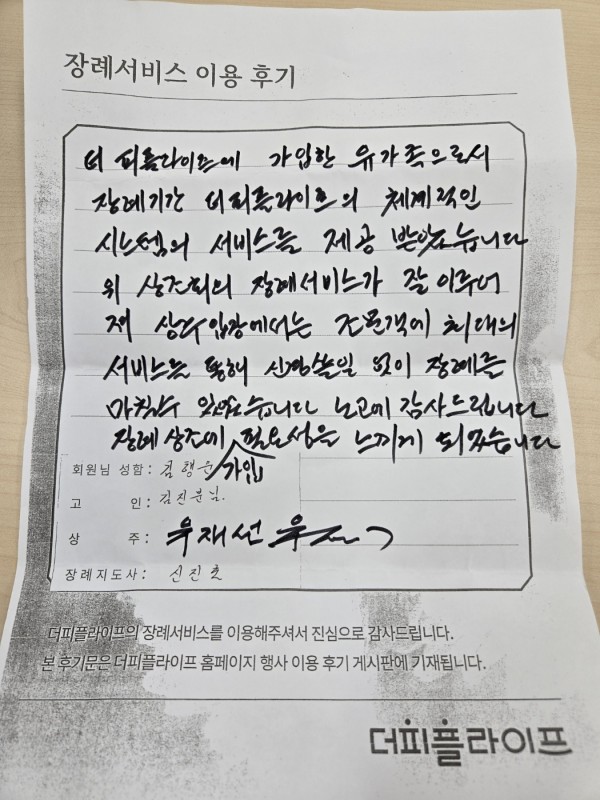 장례서비스 이용 후기
더 피플라이프에 가입한 유가족으로서
장례기간 더피플라이프의 체계적인
시스템의 서비스를 제공 받았습니다
위 상조회의 장례서비스가 잘 이루어
져 상주 입장에서는 조문객에 최대의
서비스를 통해 신경쓸일 없이 장례를
마칠수 있었습니다 노고에 감사드립니다
장례 상조에 가입 필요성을 느끼게 되었습니다
회원님 성함: 김행순
고 인: 김진분님.
상 주: 우재선
장례지도사: 신진호
더피플라이프의 장례서비스를 이용해주셔서 진심으로 감사드립니다.
본 후기문은 더피플라이프 홈페이지 행사 이용 후기 게시판에 기재됩니다.
더피플라이프